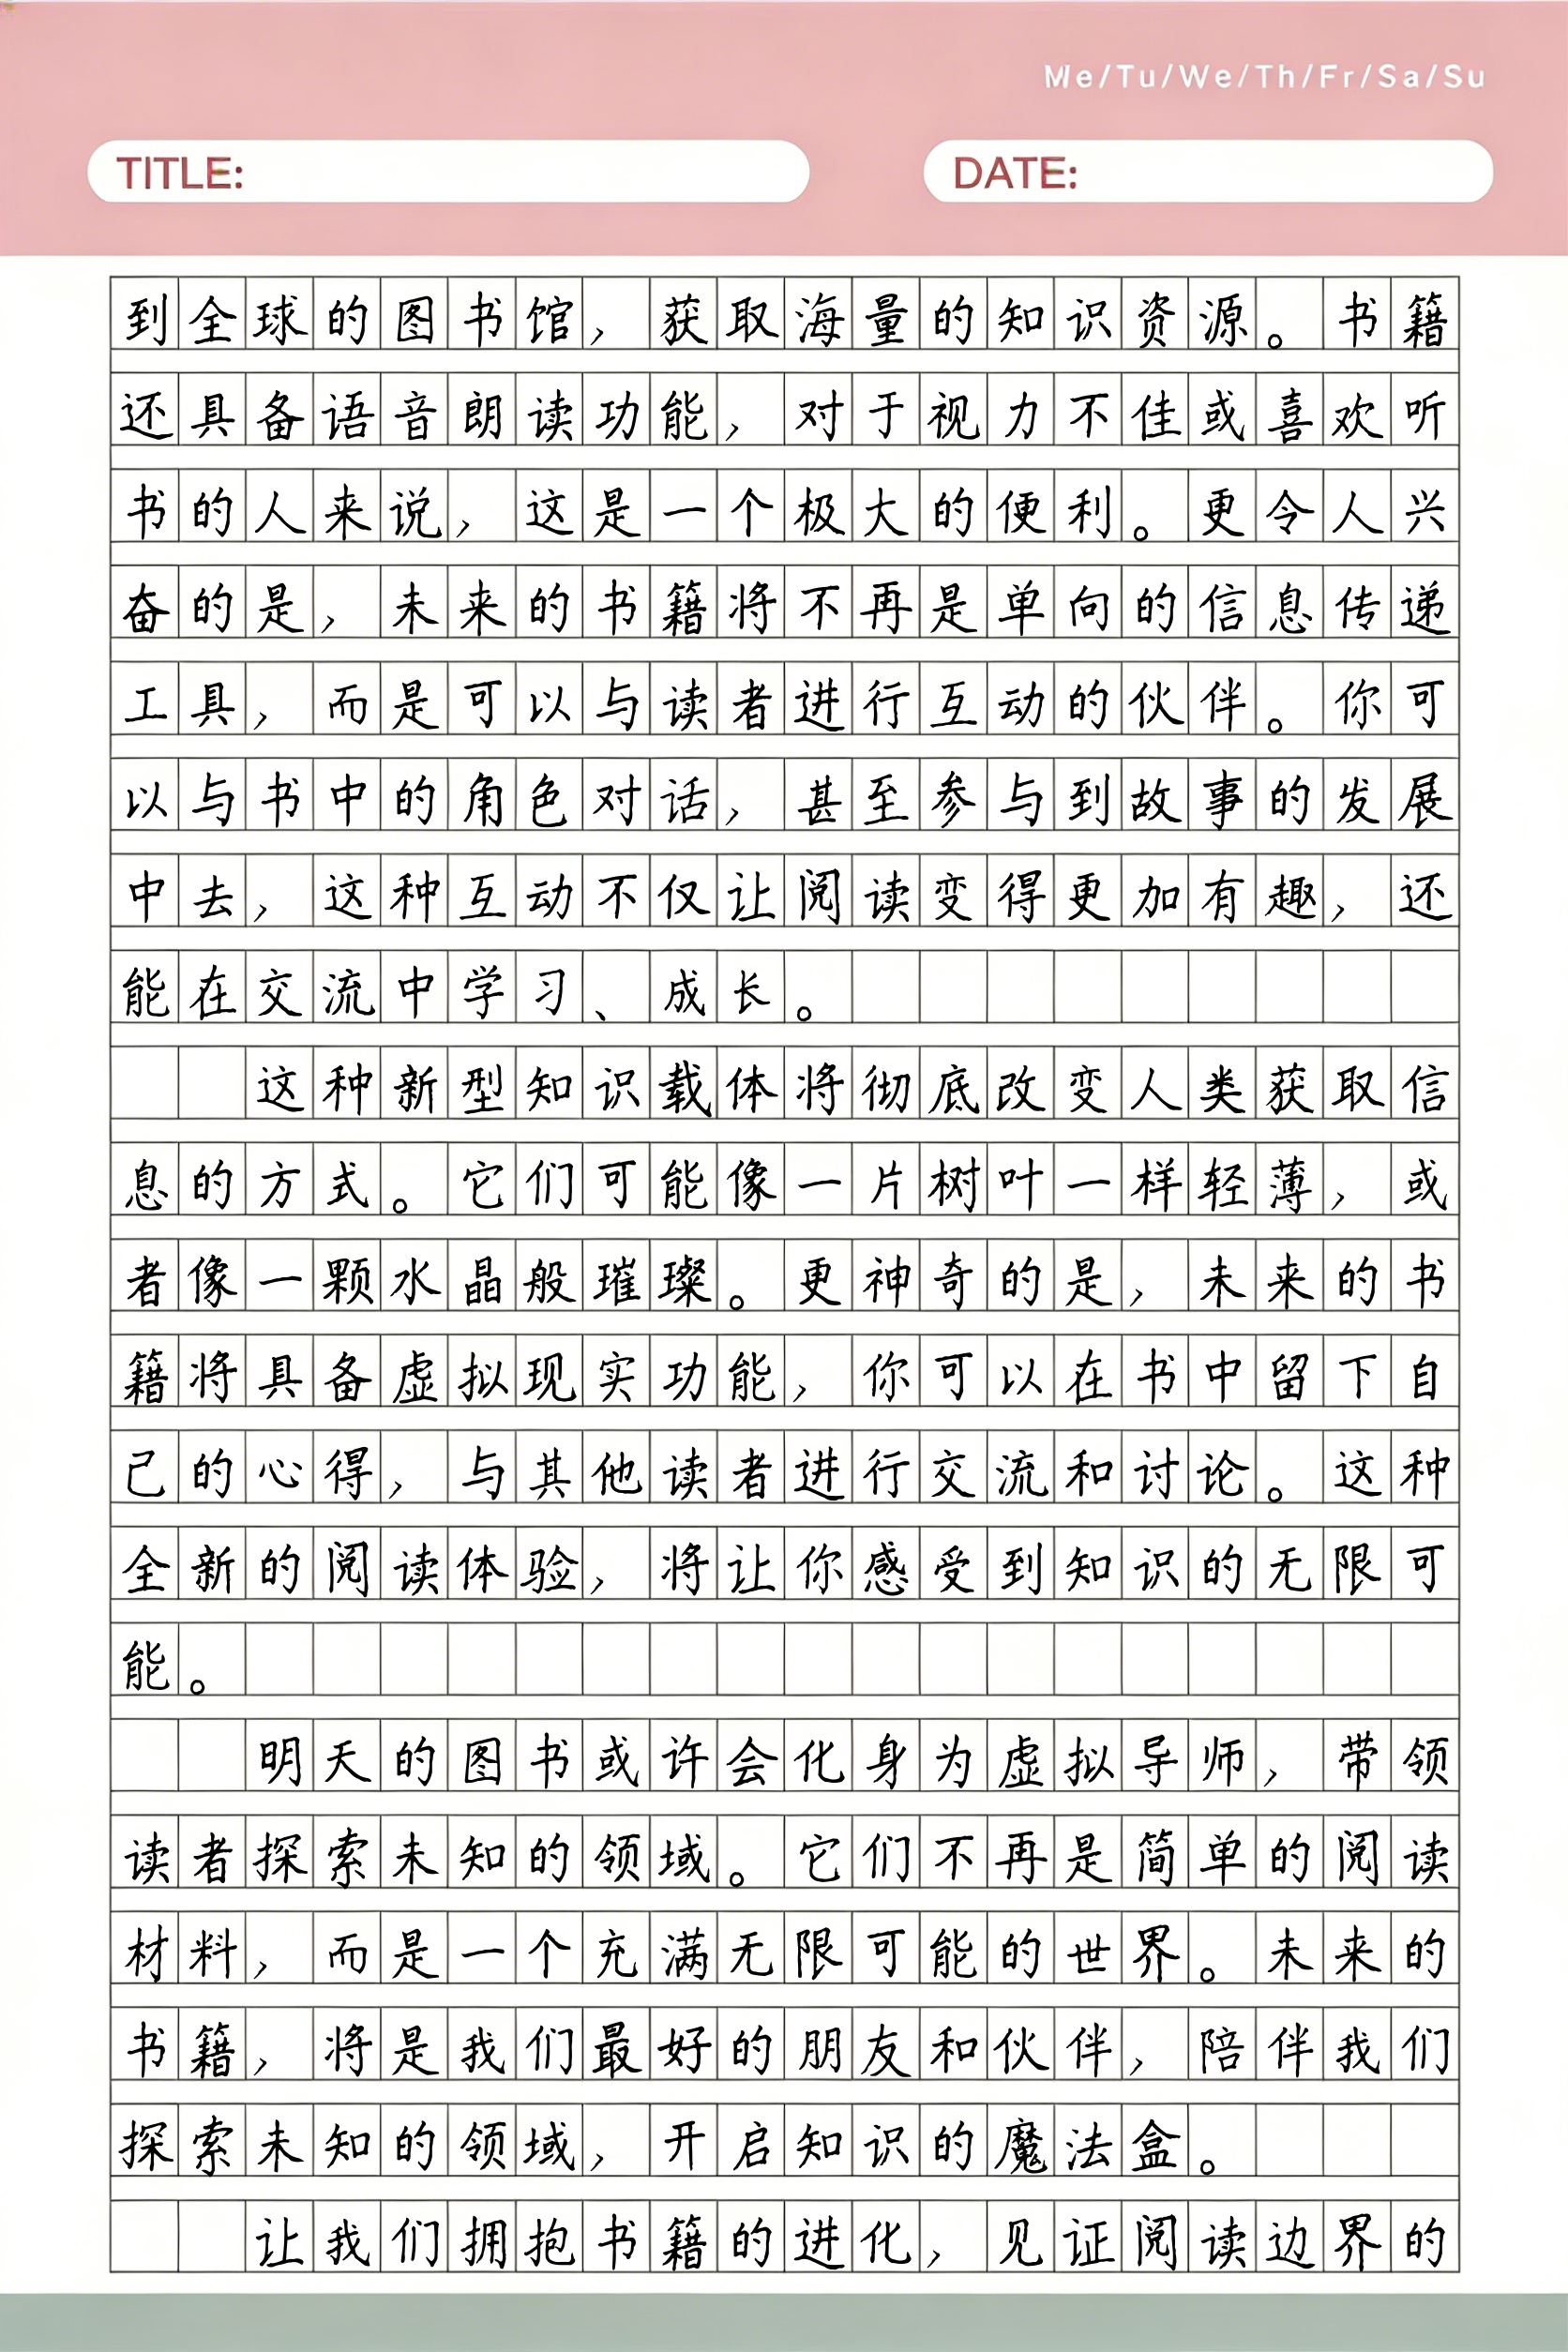 Me/Tu/We/Th/Fr/Sa/Su
TITLE:
DATE:
到全球的图书馆，获取海量的知识资源。书籍
还具备语音朗读功能，对于视力不佳或喜欢听
书的人来说，这是一个极大的便利。更令人兴
奋的是，未来的书籍将不再是单向的信息传递
工具，而是可以与读者进行互动的伙伴。你可
以与书中的角色对话，甚至参与到故事的发展
中去，这种互动不仅让阅读变得更加有趣，还
能在交流中学习、成长。
这种新型知识载体将彻底改变人类获取信
息的方式。它们可能像一片树叶一样轻薄，或
者像一颗水晶般璀璨。更神奇的是，未来的书
籍将具备虚拟现实功能，你可以在书中留下自
己的心得，与其他读者进行交流和讨论。这种
全新的阅读体验，将让你感受到知识的无限可
能。
明天的图书或许会化身为虚拟导师，带领
读者探索未知的领域。它们不再是简单的阅读
材料，而是一个充满无限可能的世界。未来的
书籍，将是我们最好的朋友和伙伴，陪伴我们
探索未知的领域，开启知识的魔法盒。
让我们拥抱书籍的进化，见证阅读边界的